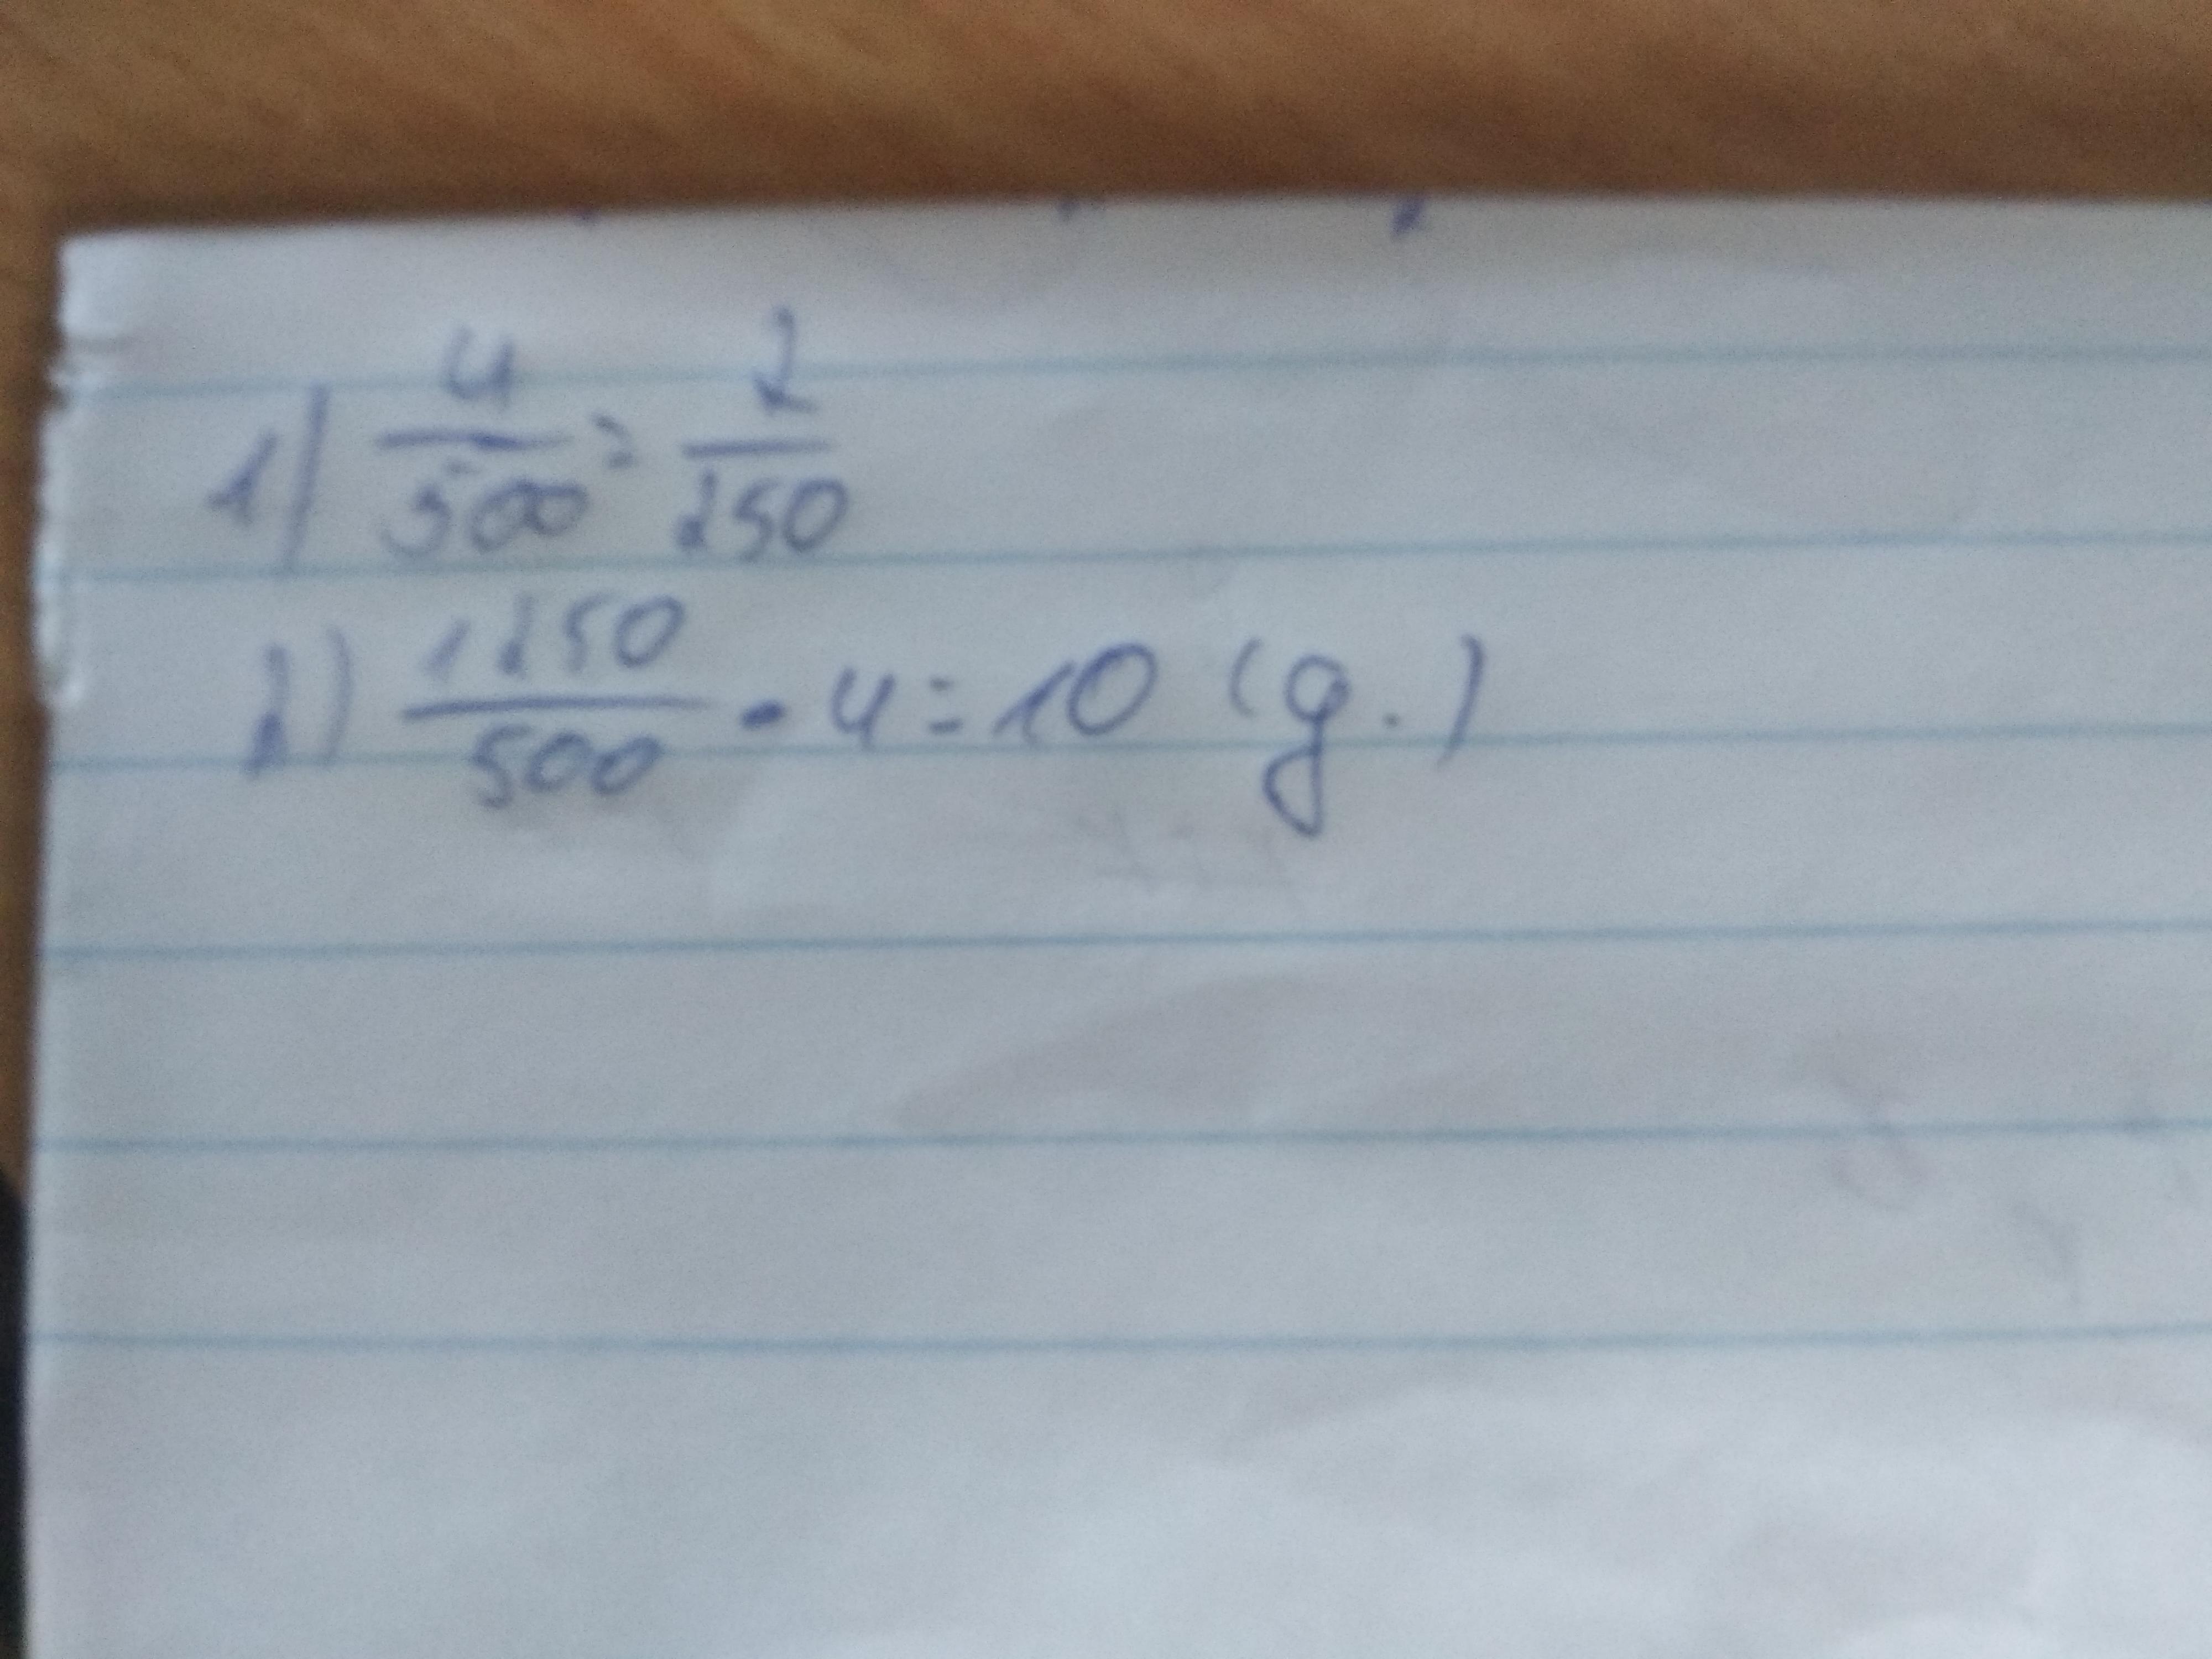 1) 4/500 = 2/250
2) 1250/500 · 4 = 10 (g.)